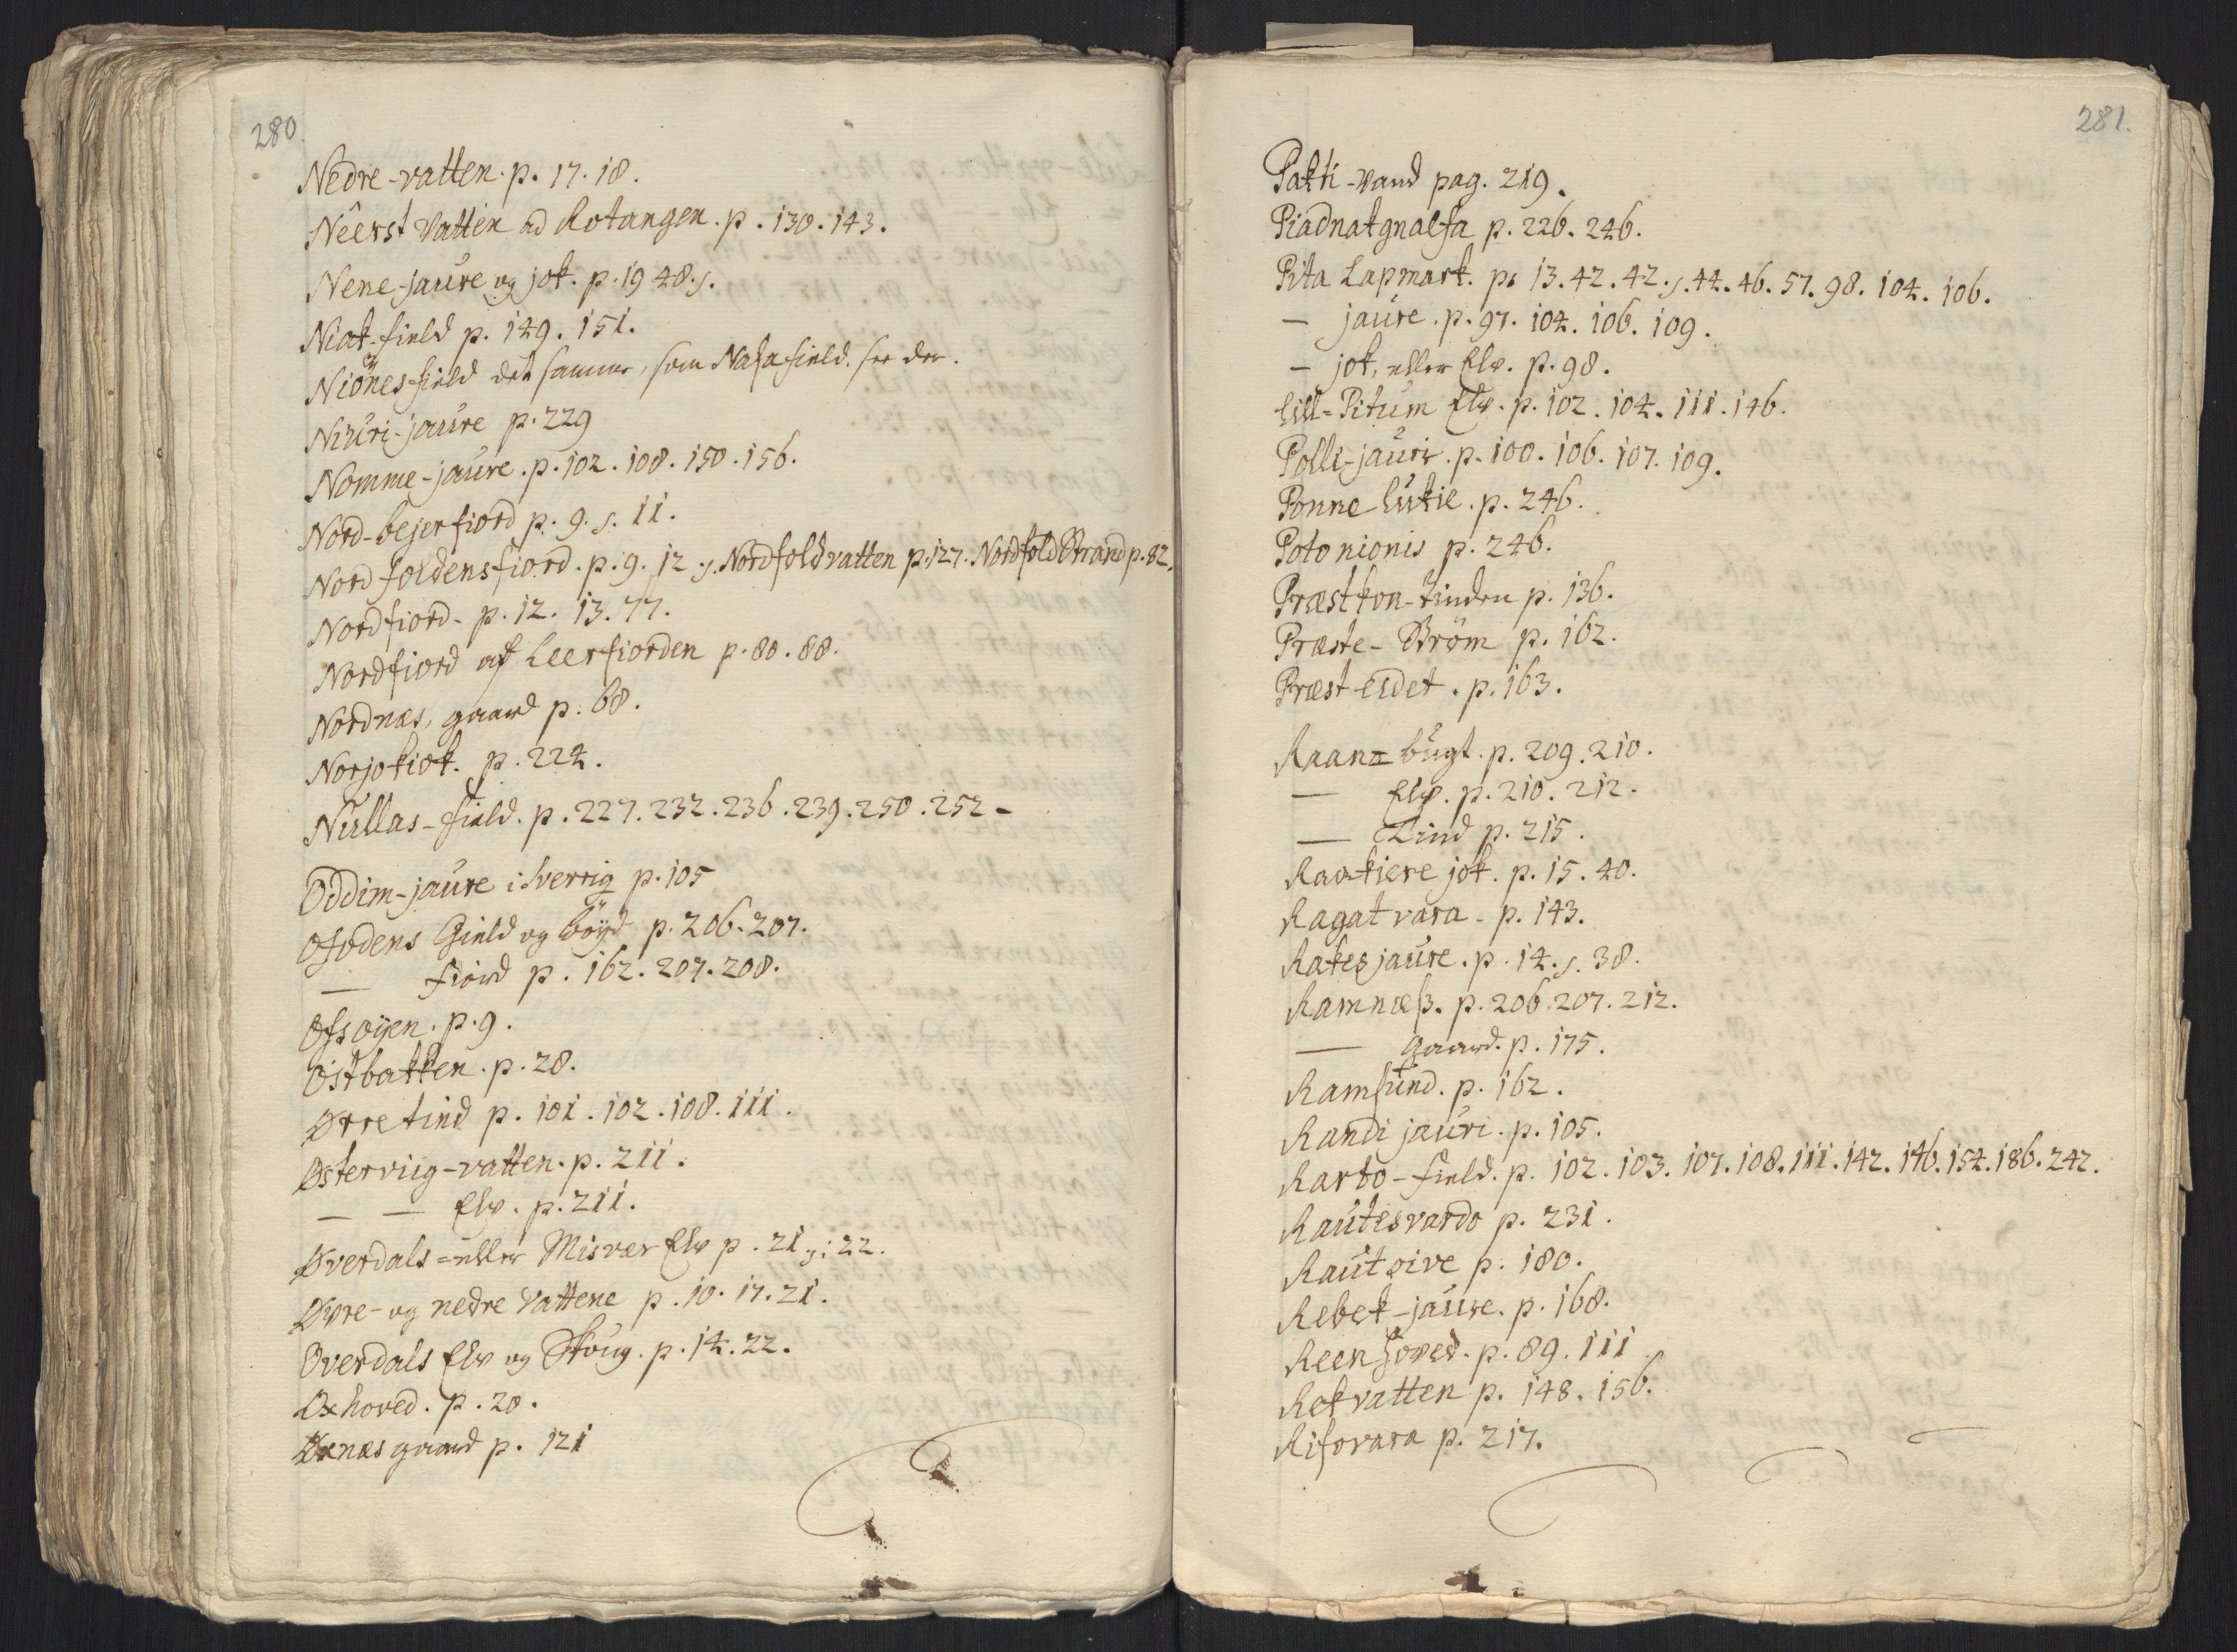 280.
Nedre-vatten. p. 17. 18.
Nêerst Vatten ad Rotangen. p. 130. 143.
Nene-jaure og jok. p. 19 48. s.
Niak-field p. 149. 151.
Niönes-field det samme, som Nasafield. see der.
Niuri-jaure p. 229
Nomme-jaure. p. 102. 108. 150. 156.
Nord-bejerfiord p. 9. s. 11.
Nord foldensfiord. p. 9. 12 s. Nordfoldvatten p. 127. Nordfold Strand p. 82.
Nordfiord. p. 12. 13. 77.
Nordfiord af Leerfiorden p. 80. 88.
Nordnæs, gaard p. 68.
Norjokiok. p. 224.
Nullas-field. p. 227. 232. 236. 239. 250. 252 -
Oddim-jaure i Sverrig p. 105
Ofodens Gield og böyd p. 206. 207.
— fiord p. 162. 207. 208.
Ofsøyen. p. 9.
Østbakken. p. 28.
Ørretind p. 101. 102. 108. 111.
Østerviig-vatten. p. 211.
— — Elv. p. 211.
Øverdals = eller Misvær Elv p. 21. s: 22.
Øvre- og nedre Vattene p. 10. 17. 21.
Overdals Elv og Skoug. p. 14. 22.
Oxhoved. p. 20.
Øxnæs gaard p. 121
281.
Pakti-Vand pag. 219.
Piadnakgnalfa p. 226. 246.
Pita Lapmark. p. 13. 42. 42. s. 44. 46. 57. 98. 104. 106.
— jaure. p. 97. 104. 106. 109.
— jok, eller Elv. p. 98.
Lill-Pitum Elv. p. 102. 104. 111. 146.
Polli-jaure. p. 100. 106. 107. 109.
Ponne-lukie. p. 246.
Potonionis p. 246.
Præstkon-tinden p. 136.
Præste-Strøm p. 162.
Præst-eidet. p. 163.
Raan= bugt. p. 209. 210.
— Elv. p. 210. 212.
— Tind p. 215.
Raa-kiere jok. p. 15. 40.
Ragatvara - p. 143.
Rakesjaure. p. 14. s. 38.
Ramnæß. p. 206. 207. 212.
— gaard. p. 175.
Ramsund. p. 162.
Randi jauri. p. 105.
Rarto-field. p. 102. 103. 107. 108. 111. 142. 146. 154. 186. 242.
Rautesvardo p. 231.
Rautoive p. 180.
Rebek-jaure. p. 168.
Reenhoved. p. 89. 111
Rekvatten p. 148. 156.
Risovara p. 217.